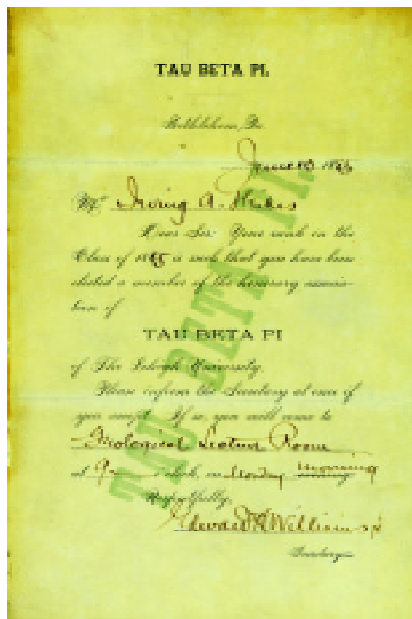 TAU BETA PI.
Bethlehem, Pa.
June 13 188
Mr. Irving A.
Dear Sir: Your rank in the
Class of 1885 is such that you have been
elected a member of the honorary
of
TAU BETA PI
of The Lehigh University.
Please inform the Secretary at once if
you accept. If so, you will come to
Geological Lecture Room
at 9 o'clock, on Monday morning
Respectfully,
Edward H. Williams Jr
Secretary
TAU BETA PI.